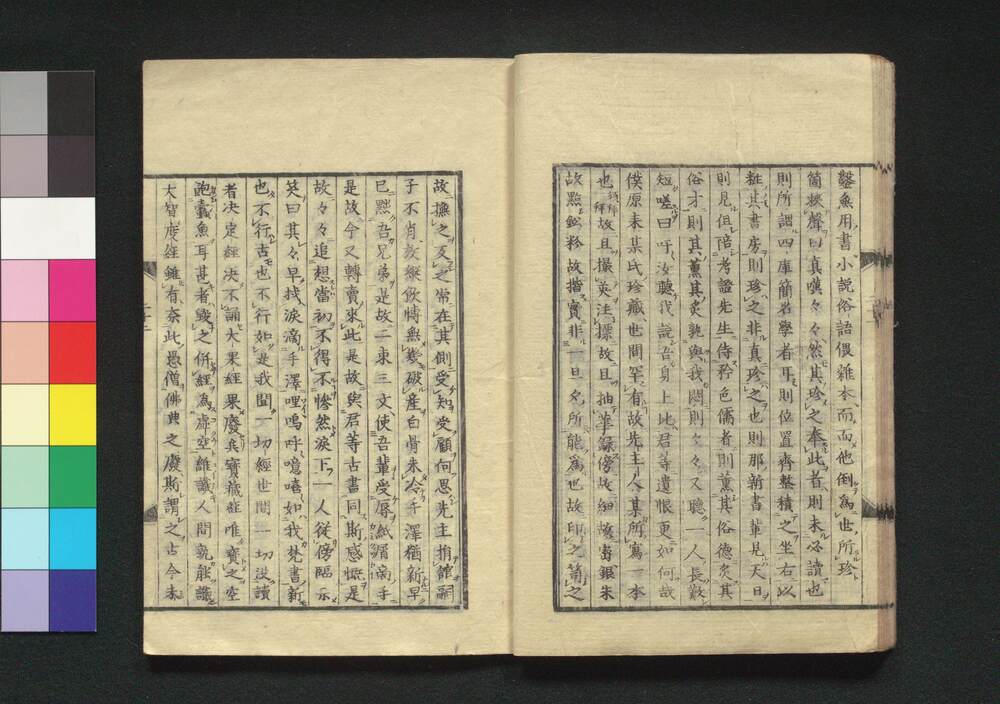 蠹魚用書小說俗語假雜本而而他倒為世所珍
箇換聲曰真嘆々々然其珍之奉此者則未必讀也
則所謂四庫簡名學者耳則位置齊整積之坐右以
粧其書房則珍之非真珍之也則那新書輩見天日
則見但陪考證先生侍矜色儒者則薰其俗德炙其
俗才則其薰其炙孰與我悶則々々又聽一人長歎
短嗟曰吁汝聽我說吾身上比君等遺恨更如何哉
僕原来某氏珍藏世間罕有故先主人某所寫一本
也故且攝英注標故且抽華錄傍故細故密銀朱
故點鉛粉故揩寶非一旦夕所能為也故印之簡之
故撫之友之常在其側受知受顧何思先主捐館嗣
子不肖敖縱飲博無幾破産白骨未冷手澤猶新早
已黙吾兄弟是故二束三文使吾輩受辱紙屑商手
是故今又轉賣來此是故與君等古書同斯感慨是
故々々追想當初不得不慘然淚下一人從傍臨示
笑曰其々早拭淚滴手澤哩嗚呼噫嘻如我梵書新
也不行古也不行如是我聞一切經世間一切没讀
者决定經决不誦大果經果廢兵寶藏經唯寶之空
飽蠹魚耳甚者賤之併經為虚空誰識人間孰能識
太智度經雖有奈此愚僧佛典之廢斯謂之古今未